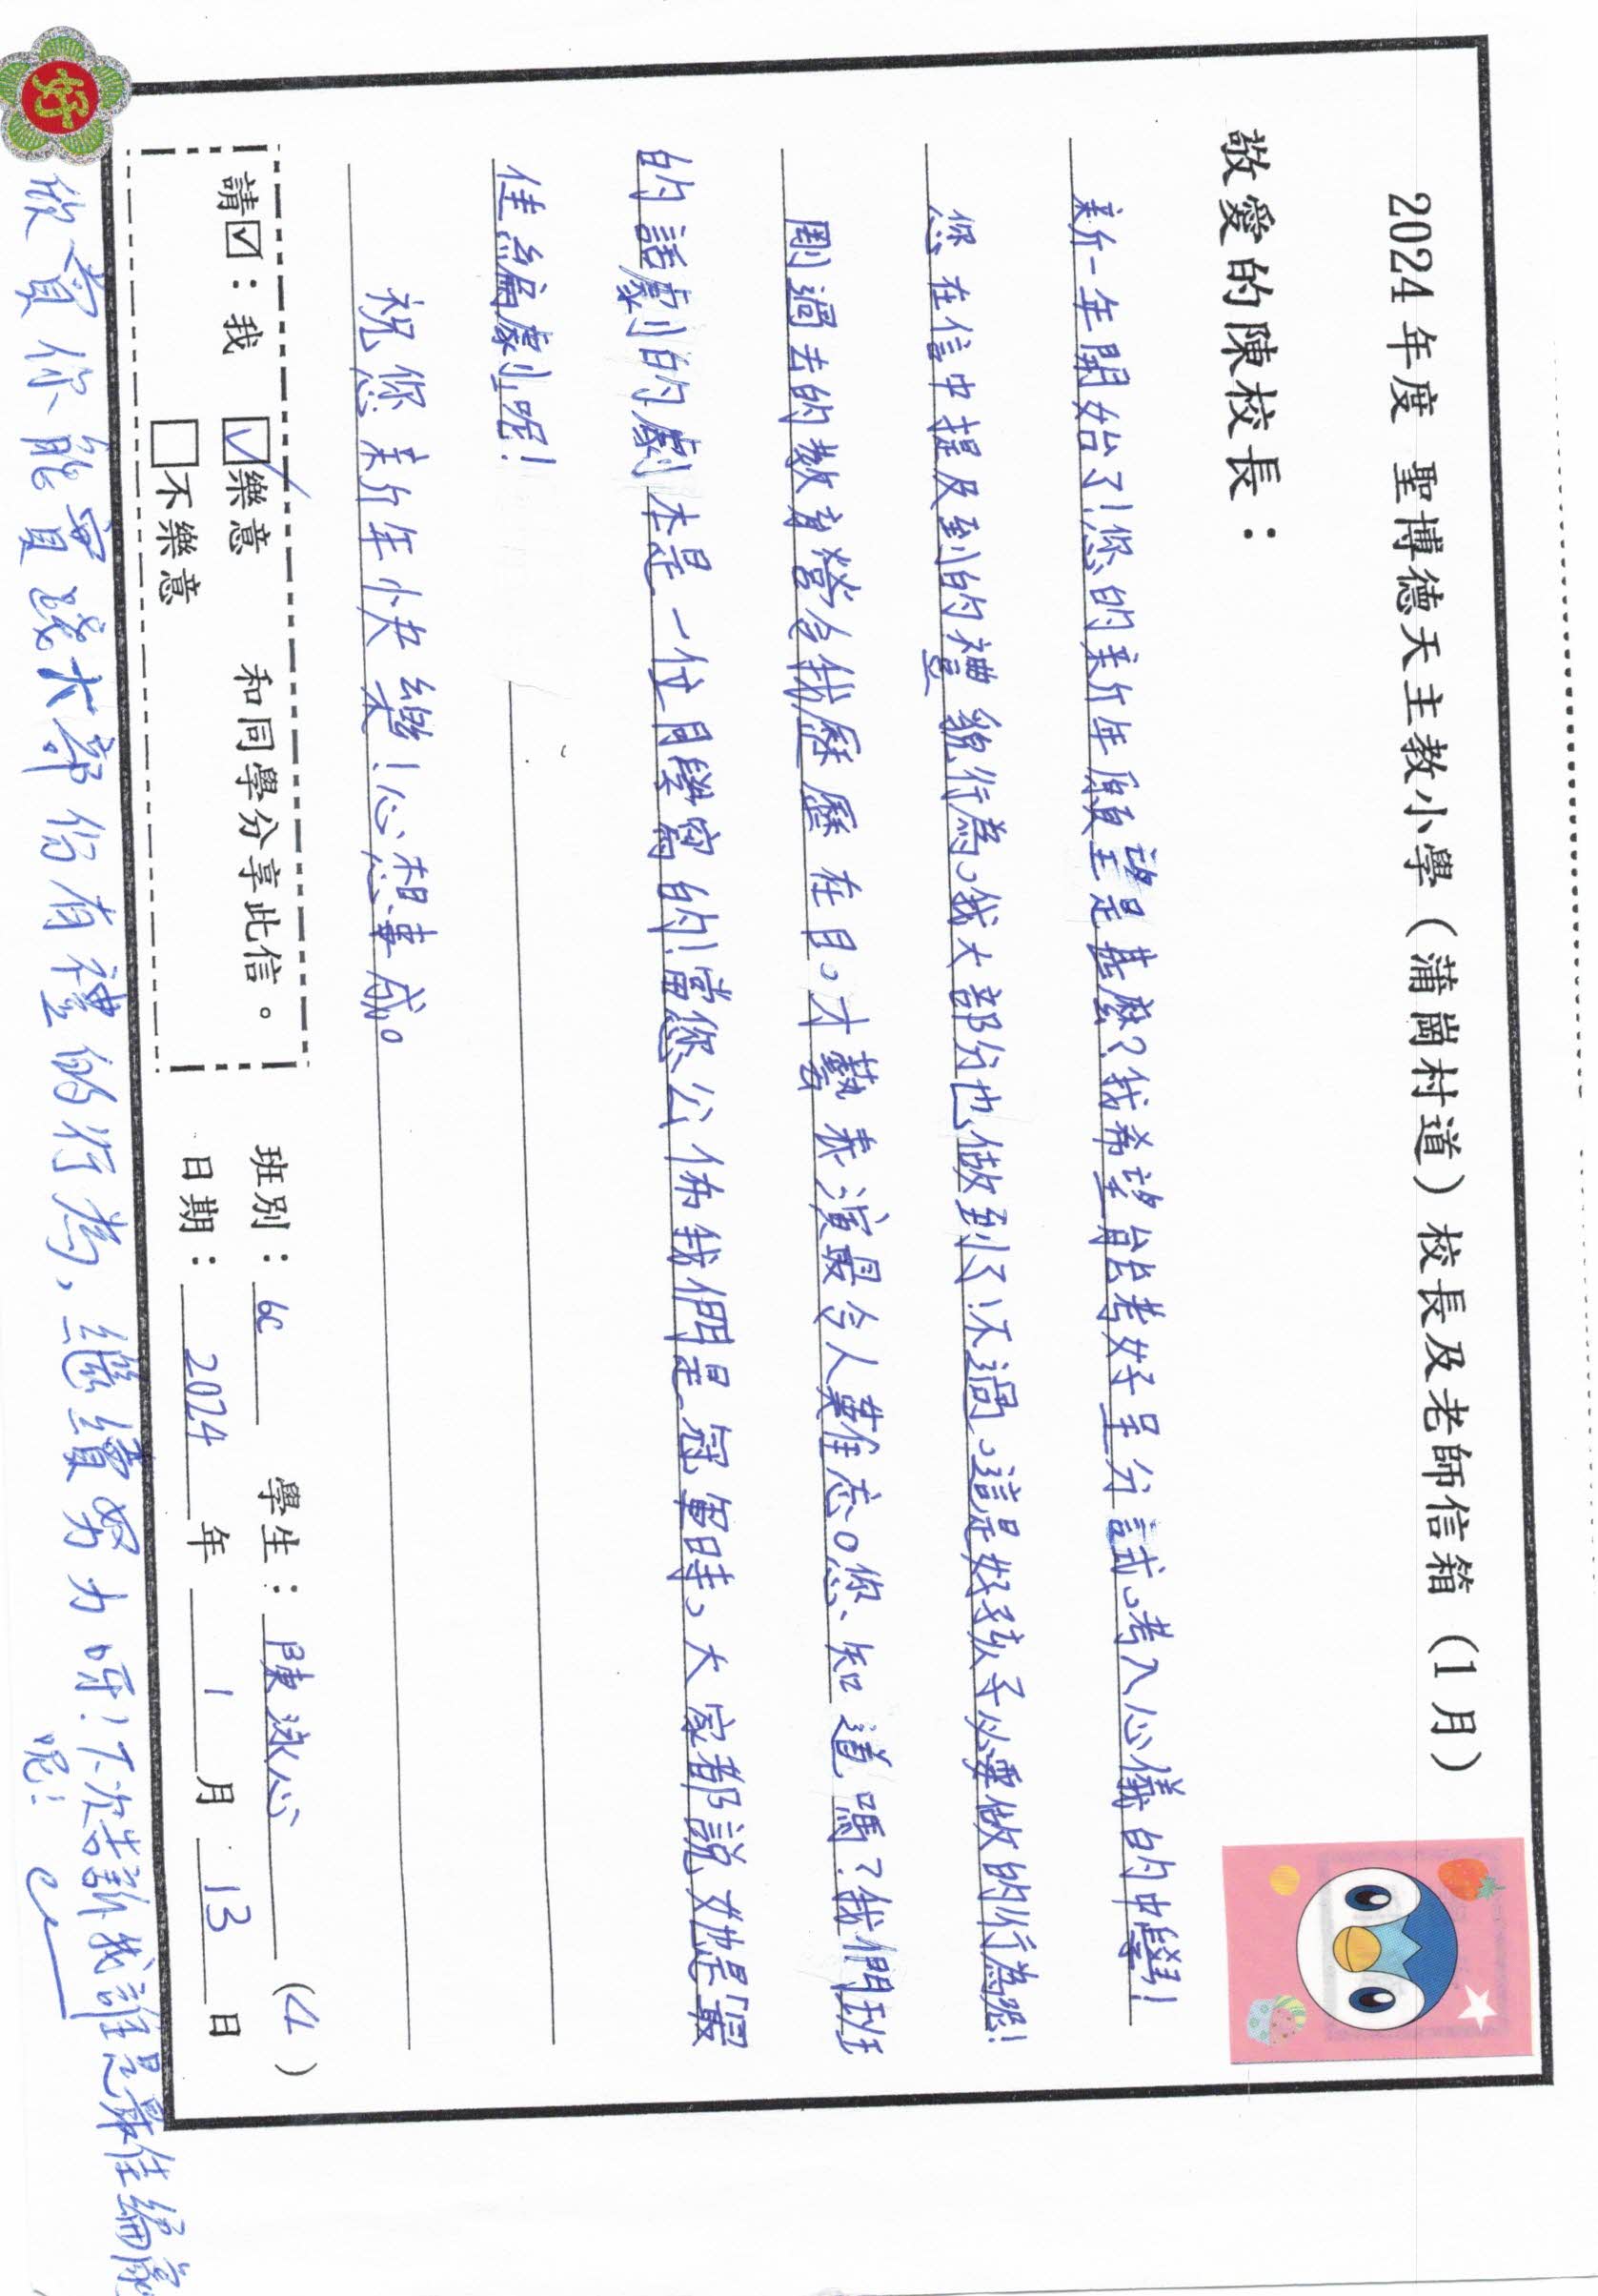 2024 年度 聖博德天主教小學（蒲崗村道）校長及老師信箱（1 月）
敬愛的陳校長：
新一年開始了！您的新年願望是甚麼？我希望能考好呈分試，考入心儀的中學！
您在信中提及到的禮貌行為，我大部分也做到了！不過，這是好孩子必要做的行為呢！
剛過去的教育營令我歷歷在目。才藝表演最令人難忘。您知道嗎？我們班
的話劇的劇本是一位同學寫的！當您公佈我們是冠軍時，大家都說她是最
佳編劇呢！
祝您新年快樂！心想事成。
請☑：我 ☑樂意 和同學分享此信。
□不樂意
班別：6C 學生：陳泳心 (4)
日期：2024 年 1 月 13 日
好
欣賞你能實踐大部份有禮的行為，繼續努力呀！下次告訴我誰是最佳編劇
呢！